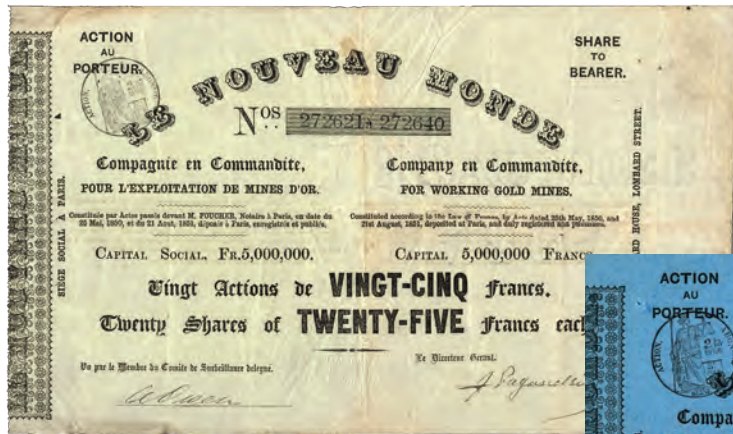 ACTION
AU
PORTEUR.
SHARE
TO
BEARER.
LE NOUVEAU MONDE
Nos. 272621 à 272640
Compagnie en Commandite,
POUR L'EXPLOITATION DE MINES D'OR.
Constituée par Actes passés devant M. FOUCHER, Notaire à Paris, en date du
25 Mai, 1850, et du 21 Aout, 1851, déposés à Paris, enregistrés et publiés.
CAPITAL SOCIAL, FR.5,000,000.
Company en Commandite,
FOR WORKING GOLD MINES.
Constituted according to the Law of France, by Acts dated 25th May, 1850, and
21st August, 1851, deposited at Paris, and duly registered and
CAPITAL 5,000,000 FRANCS
Vingt Actions de VINGT-CINQ Francs.
Twenty Shares of TWENTY-FIVE Francs each
Vu par le Membre du Comite de Surveillance delegué.
Le Directeur Gerant.
SIEGE SOCIAL A PARIS.
ARD HOUSE, LOMBARD STREET.
ACTION
AU
PORTEUR.
Compa